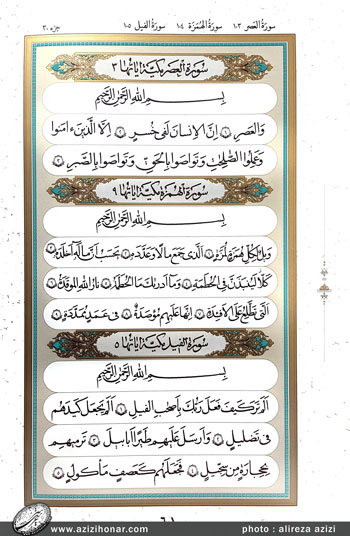 سورة العصر ١٠٣ سورة الهمزة ١٠٤ سورة الفيل ١٠٥ جزء ٣٠
سورة العصر مكية آياتها ٣
بسم الله الرحمن الرحيم
والعصر ١ إن الإنسان لفي خسر ٢ إلا الذين ءامنوا
وعملوا الصلحت وتواصوا بالحق وتواصوا بالصبر ٣
سورة الهمزة مكية آياتها ٩
بسم الله الرحمن الرحيم
ويل لكل همزة لمزة ١ الذى جمع مالا وعدده ٢ يحسب أن ماله أخلده ٣
كلا لينبذن في الحطمة ٤ وما أدرىك ما الحطمة ٥ نار الله الموقدة ٦
التى تطلع على الأفئدة ٧ إنها عليهم موصدة ٨ فى عمد ممددة ٩
سورة الفيل مكية آياتها ٥
بسم الله الرحمن الرحيم
ألم تر كيف فعل ربك بأصحب الفيل ١ ألم يجعل كيدهم
فى تضليل ٢ وأرسل عليهم طيرا أبابيل ٣ ترميهم
بحجارة من سجيل ٤ فجعلهم كعصف مأكول ٥
٦٠١
www.azizihonar.com photo : alireza azizi